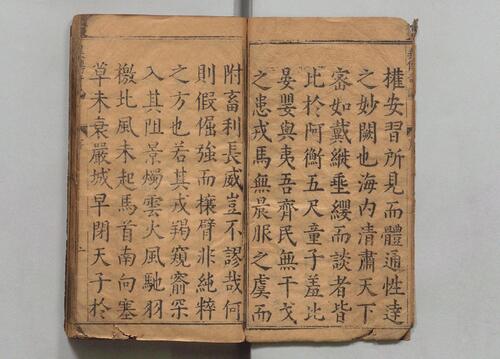 權安習所見而體通性達
之妙闕也海內清肅天下
審如戴縱垂纓而談者皆
比於阿衡五尺童子羞比
晏嬰與夷吾齊民無干戈
之患戎馬無晨服之虞而
附畜利長威豈不謬哉何
則假倔強而攘臂非純粹
之方也若其戎羯窺窬罙
入其阻景燭雲火風馳羽
檄比風未起馬首南向塞
草未衰嚴城早閉天子於